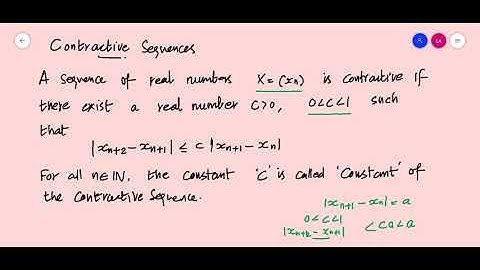 Contractive Sequences
A sequence of real numbers X = (xn) is contractive if
there exist a real number C>0, 0<C<1 such
that
|xn+2 - xn+1| ≤ c |xn+1 - xn|
For all n∈IN, the constant 'C' is called 'Constant' of
the Contractive Sequence.
|xn+1 - xn| = a
0<c<1
|xn+2 - xn+1| < ca < a